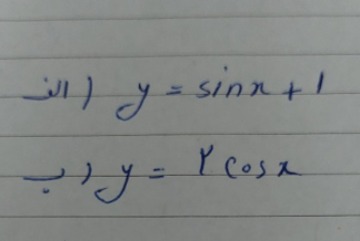 الف) y = sinx + 1
ب) y = ۲ cosx